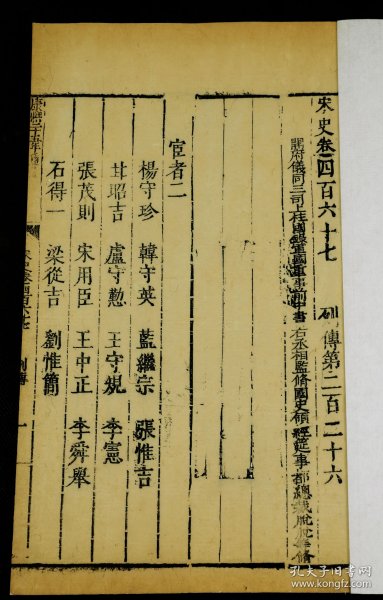 宋史卷四百六十七 列傳第二百二十六
開府儀同三司上柱國錄軍國重事前中書右丞相監修國史領經筵事都總裁脫脫等修
宦者二
楊守珍 韓守英 藍繼宗 張惟吉
甘昭吉 盧守懃 王守規 李憲
張茂則 宋用臣 王中正 李舜舉
石得一 梁從吉 劉惟簡
列傳
一
孔夫子旧书网